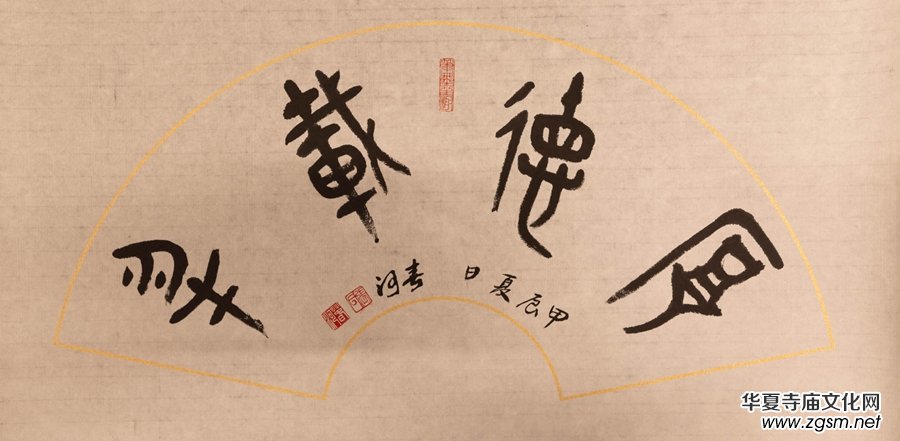 厚德載物
甲辰夏日 春河
华夏寺庙文化网
www.zgsm.net